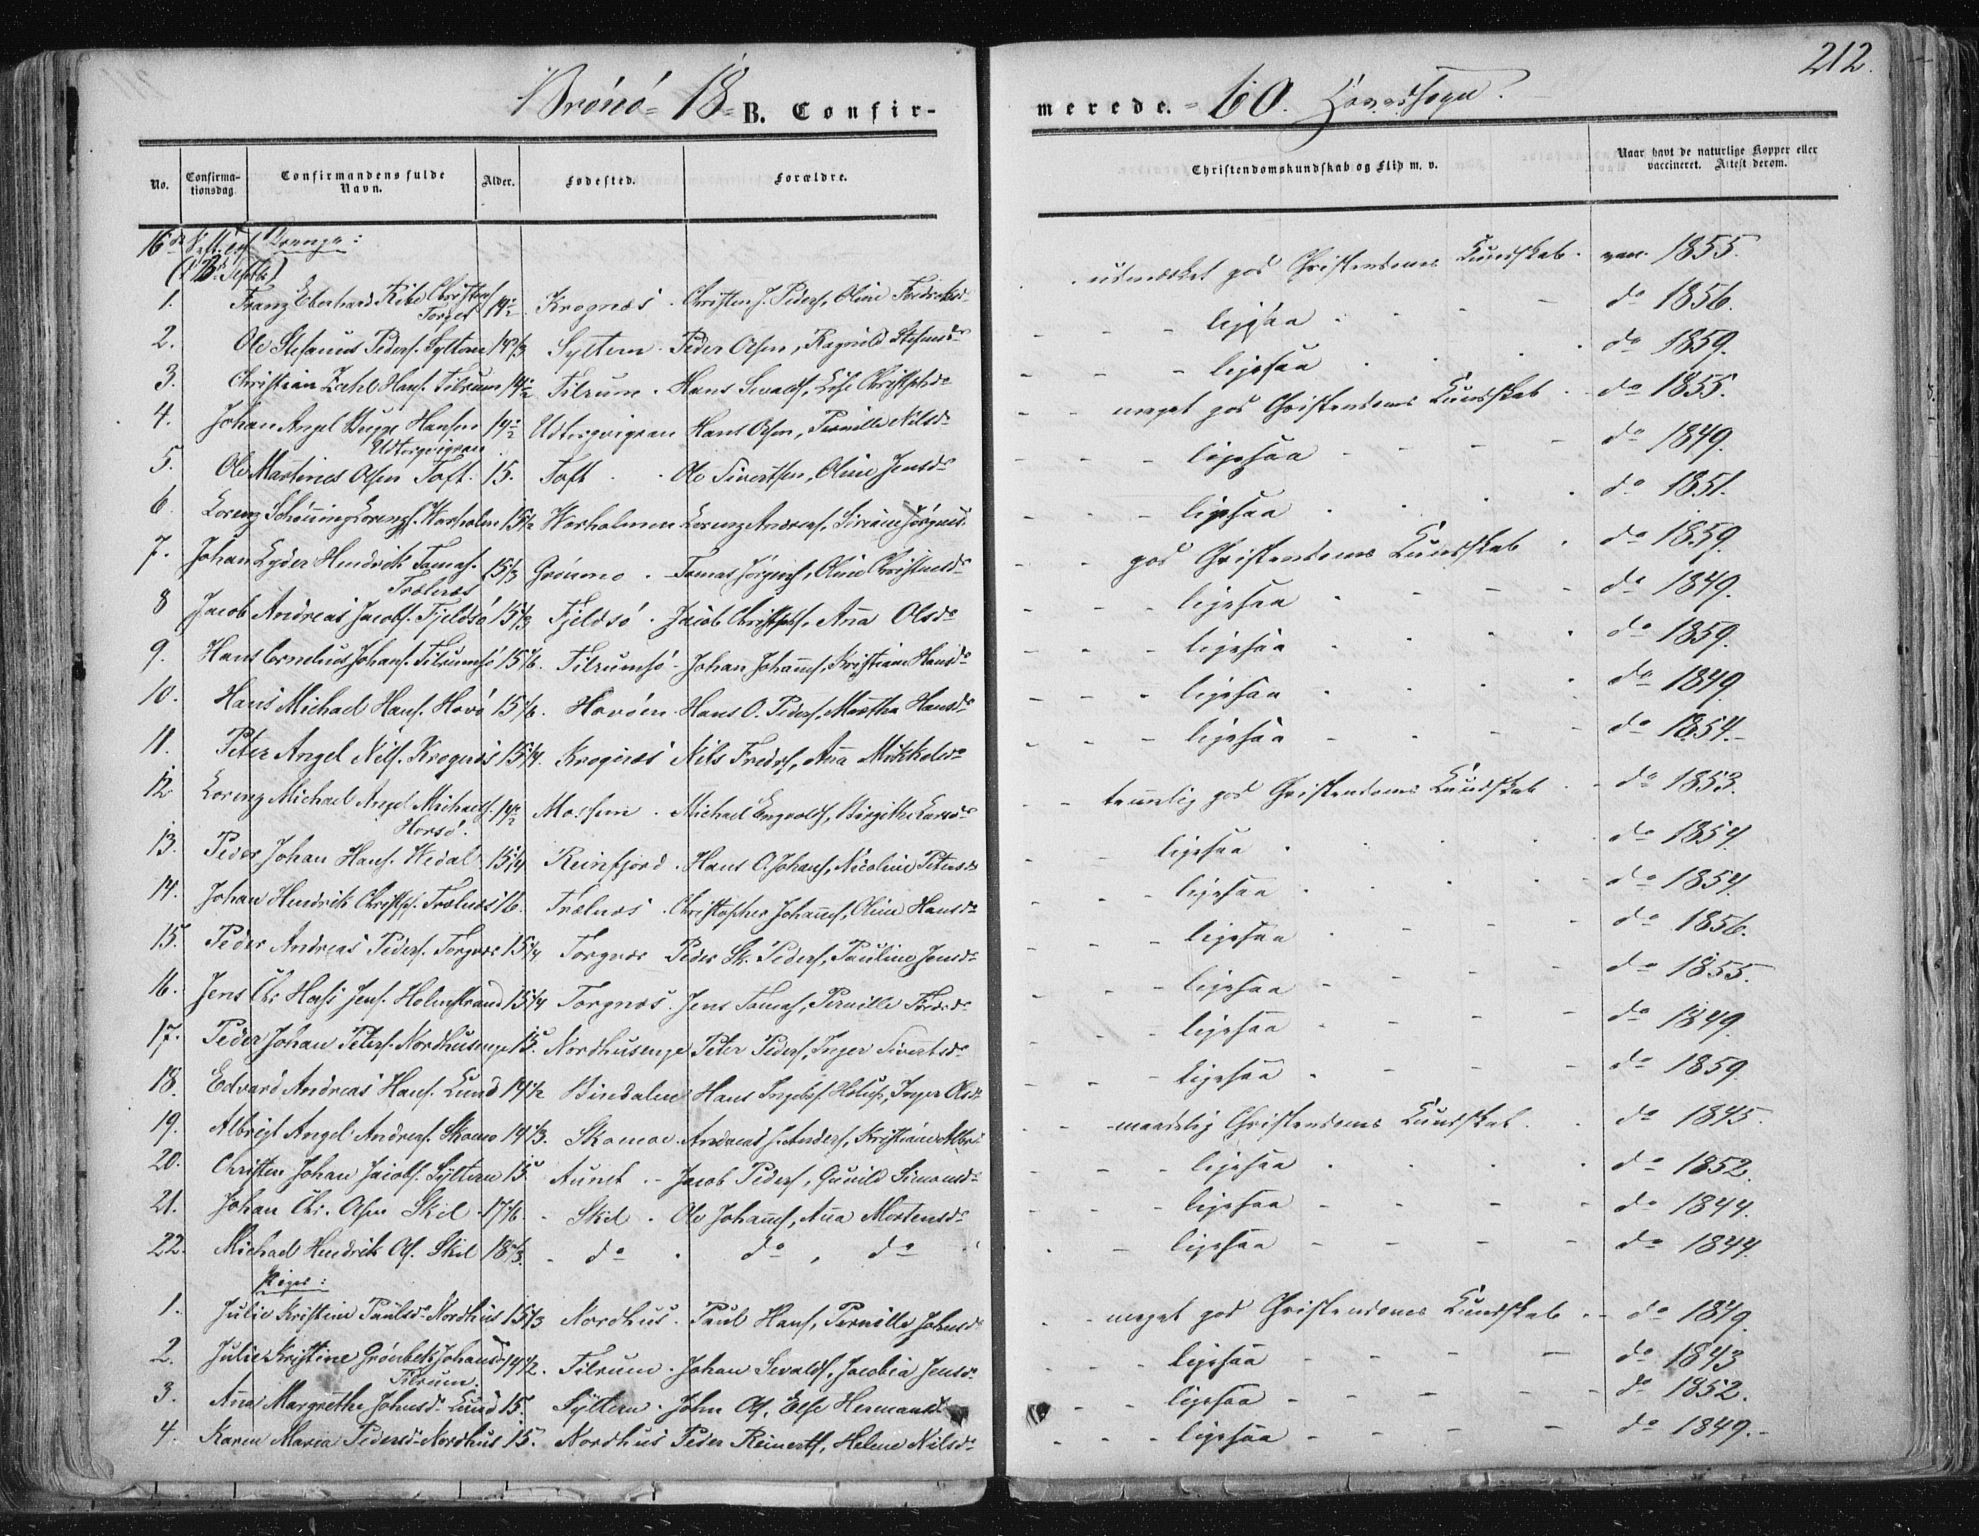 212.
Brönö- 18 B. Confir-
merede. 60. Hovedsogn.
No.
Confirma-
tionsdag.
Confirmandens fulde
Navn.
Alder.
Fødested.
Forældre.
Christendomskundskab og Flid m. v.
Naar havt de naturlige Kopper eller
vaccineret. Attest derom.
16de Drenge:
1. Franz Eberhard Christens. 14 1/2 Krognæs. Christen J. Peders, Oline udmærket god Christendoms Kundskab. vac. 1855.
Torget
2. Ole Stefanus Peders. Syltern 14 2/3 Syltern. Peder Olsen, Ragnild Stefansdr ligesaa do 1856.
3. Christian Zahl Hans. Tilrum 14 1/2 Tilrum. Hans Sivalds, Else Christophdr ligesaa do 1859.
4. Johan Angel Hansen 14 1/2 Udtorgvigvan Hans Olsen, Pernille Nilsdr meget god Christendoms Kundskab do 1855.
Udtorgvigvan
5. Ole Martines Olsen Toft. 15. Toft. Ole Sivertsen, Oline Jensdr ligesaa do 1849.
6. Lorenz Schönning Lorenzs. Horsholm 15 1/2 Horholmen Lorenz Andreas, ligesaa do 1851.
7. Johan Lyder Hendrik Tomas. 15 1/3 Grönmo. Tomas Jörgens, Oline Christensdr god Christendoms Kundskab do 1859.
Trælnæs
8 Jacob Andreas Jacobs. Fjeldsö 15 1/3 Fjeldsö. Jacob Christophs, Ana Olsdr ligesaa do 1849.
9. Hans Cornelius Johans. Tilrumsö 15 1/6. Tilrumsö. Johan Johanns, Kristiane Hansdr ligesaa do 1859.
10. Hans Michael Hans. Havö 15 1/6. Havöen. Hans O. Peders, Martha Hansdr ligesaa do 1849.
11. Peter Angel Nils. Krognæs 15 1/4. Krognæs Nils Fredrs, Ana Mikkelsdr ligesaa do 1854.
12 Lorenz Michael Angel Michaels. 14 1/2 Mosem. Michael Engvolds, Birgithe Larsdr temmelig god Christendoms Kundskab do 1853.
Horsö.
13. Peder Johan Hans. Hedal 15 1/4 Reinfjord. Hans O. Johans, Nicoline Petersdr ligesaa do 1854
14. Johan Hendrik Christphs. Trælnæs 16. Trælnæs. Christopher Johanns, Oline Hansdr ligesaa do 1854.
15. Peder Andreas Peders. Torgnæs 15 1/4 Torgnæs Peder Sk. Peders, Pauline Jensdr ligesaa do 1856.
16. Jens Chr. Jens. Holmstrand 15 1/4 Torgnæs. Jens Tomas, Pernille Fredrdr ligesaa do 1855.
17. Peder Johan Peters. Nordhusenge 15. Nordhusenge Peter Peders, Inger Sivertsdr ligesaa do 1849.
18. Edvard Andreas Hans. Lund 14 1/2 Bindalen Hans Ingebr. Inger Olsdr ligesaa do 1859
19. Albrigt Angel Andreas. Skomo 14 1/3. Skomoe. Andreas J. Anders, Kristiane maadelig Christendoms Kundskab. do 1845.
20. Christen Johan Jacobs. Syltern 15 Aunet. Jacob Peders, Gunild Simonsdr ligesaa do 1852.
21. Johan Chr. Olsen Skil 17 1/6. Skil. Ole Johanns, Ana Mortensdr ligesaa do 1844.
22. Michael Hendrik Ols. Skil 18 1/3. do do, do ligesaa do 1844
Piger:
1. Julie Kristine Paulsdr Nordhus 15 1/3 Nordhus. Paul Hans, Pernille Johnsdr meget god Christendoms Kundskab do 1849.
2. Julie Kristine Grönbek Johansdr 14 1/2. Tilrum. Johan Sivalds, Jacobia Jensdr ligesaa do 1843
Tilrum.
3. Ana Margrethe Johnsdr Lund 15. Syltern. John Ols, Else Hermansdr ligesaa do 1852.
4. Karen Maria Pedersdr Nordhus 15. Nordhus Peder Reinerts, Helene Nilsdr ligesaa do 1849.